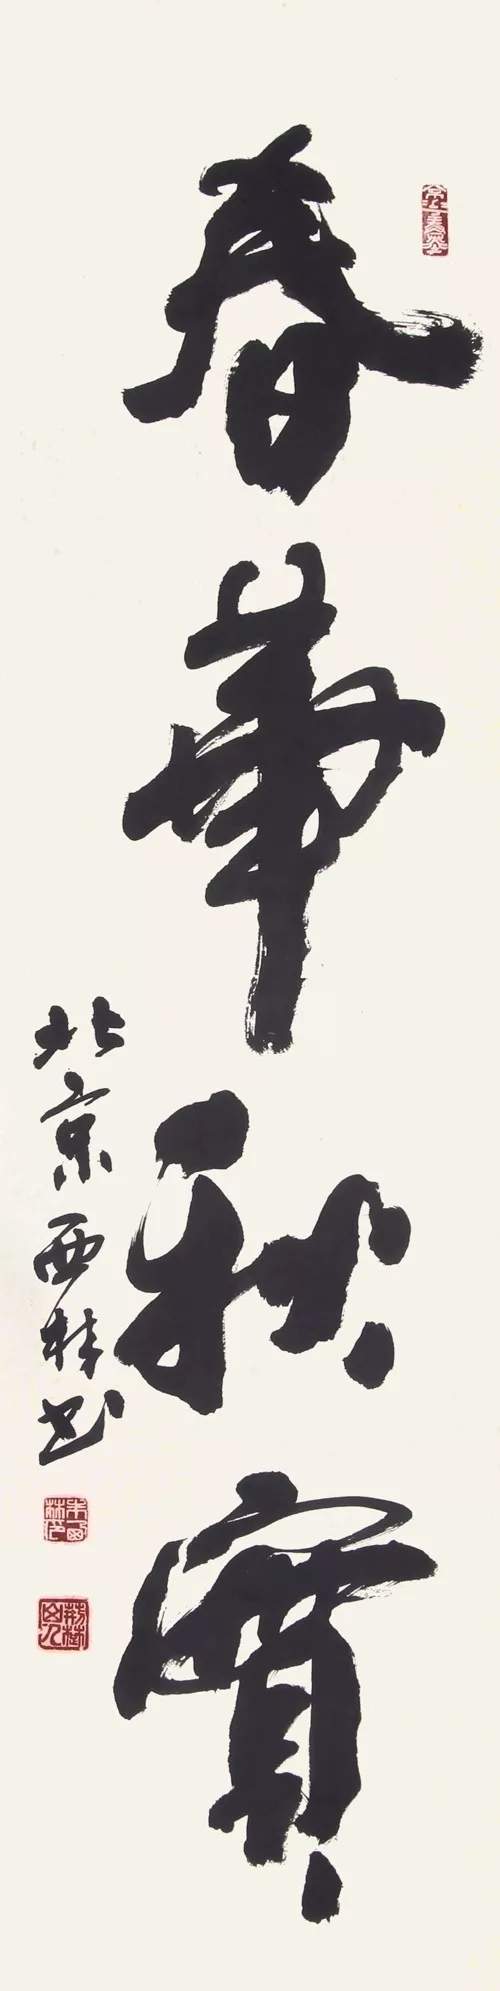 春華秋實
北京西林书